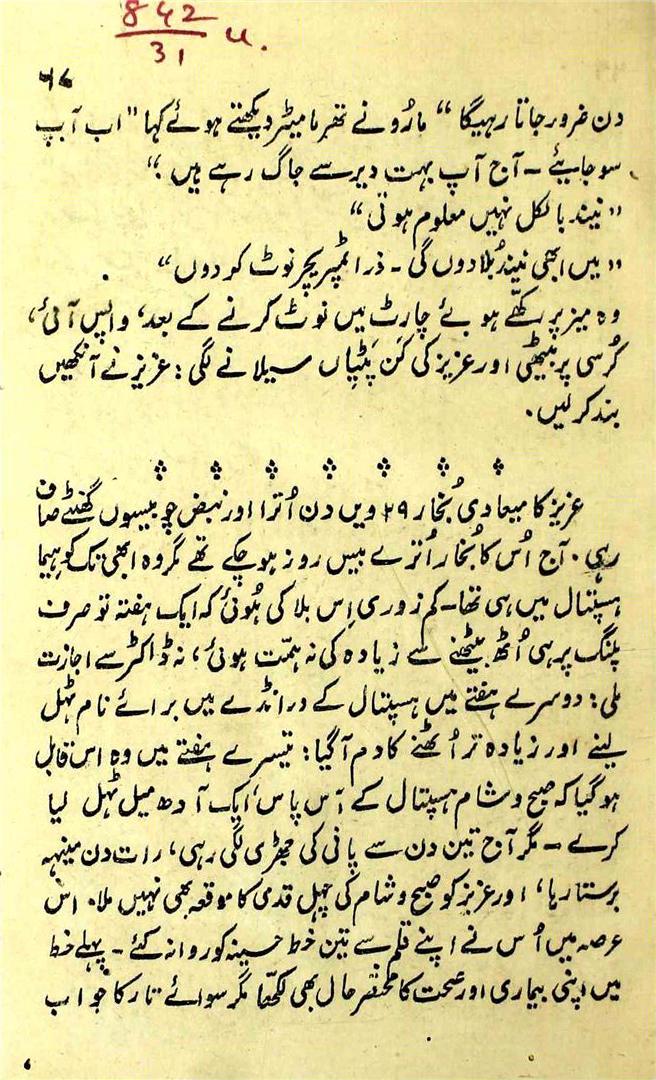 842
31 u.
۴۷
دن ضرور جاتا رہیگا“ مارُو نے تھرمامیٹر دیکھتے ہوئے کہا "اب آپ
سو جایئے ۔ آج آپ بہت دیر سے جاگ رہے ہیں“
”نیند بالکل نہیں معلوم ہوتی“
”میں ابھی نیند بُلا دوں گی ۔ ذرا ٹمپریچر نوٹ کر دوں“
وہ میز پر رکھے ہوئے چارٹ میں نوٹ کرنے کے بعد، واپس آئی،
کُرسی پر بیٹھی اور عزیز کی کَن پَٹیاں سیلانے لگی: عزیز نے آنکھیں
بند کر لیں.
عزیز کا میعادی بُخار ۲۹ ویں دن اُترا اور نبض چوبیسوں گھنٹے صاف
رہی. آج اُس کا بُخار اُترے بیس روز ہو چکے تھے مگر وہ ابھی تک کوہیما
ہسپتال میں ہی تھا۔ کم زوری اِس بلا کی ہُوئی کہ ایک ہفتہ تو صرف
پلنگ پر ہی اُٹھ بیٹھنے سے زیادہ کی نہ ہمّت ہوئی، نہ ڈاکٹر سے اجازت
ملی: دوسرے ہفتے میں ہسپتال کے ورانڈے میں برائے نام ٹہل
لینے اور زیادہ تر اُٹھنے کا دم آگیا: تیسرے ہفتے میں وہ اس قابل
ہو گیا کہ صبح و شام ہسپتال کے آس پاس، ایک آدھ میل ٹہل لیا
کرے ۔ مگر آج تین دن سے پانی کی جھڑی لگی رہی، رات دن مینہہ
برستا رہا، اور عزیز کو صبح و شام کی چہل قدمی کا موقعہ بھی نہیں ملا. اس
عرصہ میں اُس نے اپنے قلم سے تین خط حسینہ کو روانہ کئے ۔ پہلے خط
میں اپنی بیماری اور صحت کا مختصر حال بھی لکھا مگر سوائے تار کا جواب